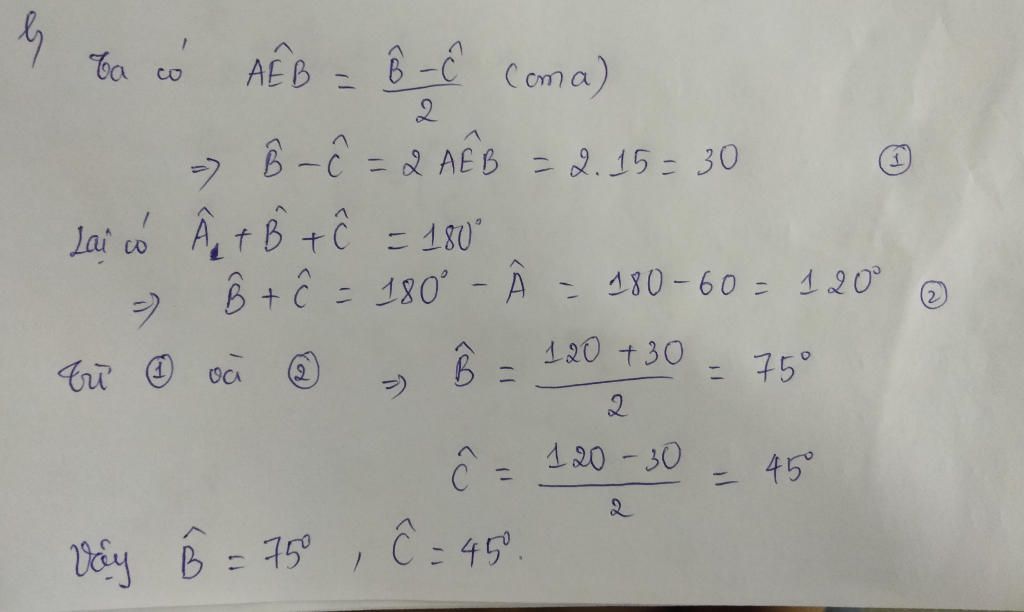 b,
Ta có AÊB = (B̂ - Ĉ)/2 (cm a)
=> B̂ - Ĉ = 2 AÊB = 2.15 = 30 ①
Lại có Â + B̂ + Ĉ = 180°
=> B̂ + Ĉ = 180° - Â = 180 - 60 = 120° ②
Từ ① và ② => B̂ = (120 + 30)/2 = 75°
Ĉ = (120 - 30)/2 = 45°
Vậy B̂ = 75°, Ĉ = 45°.